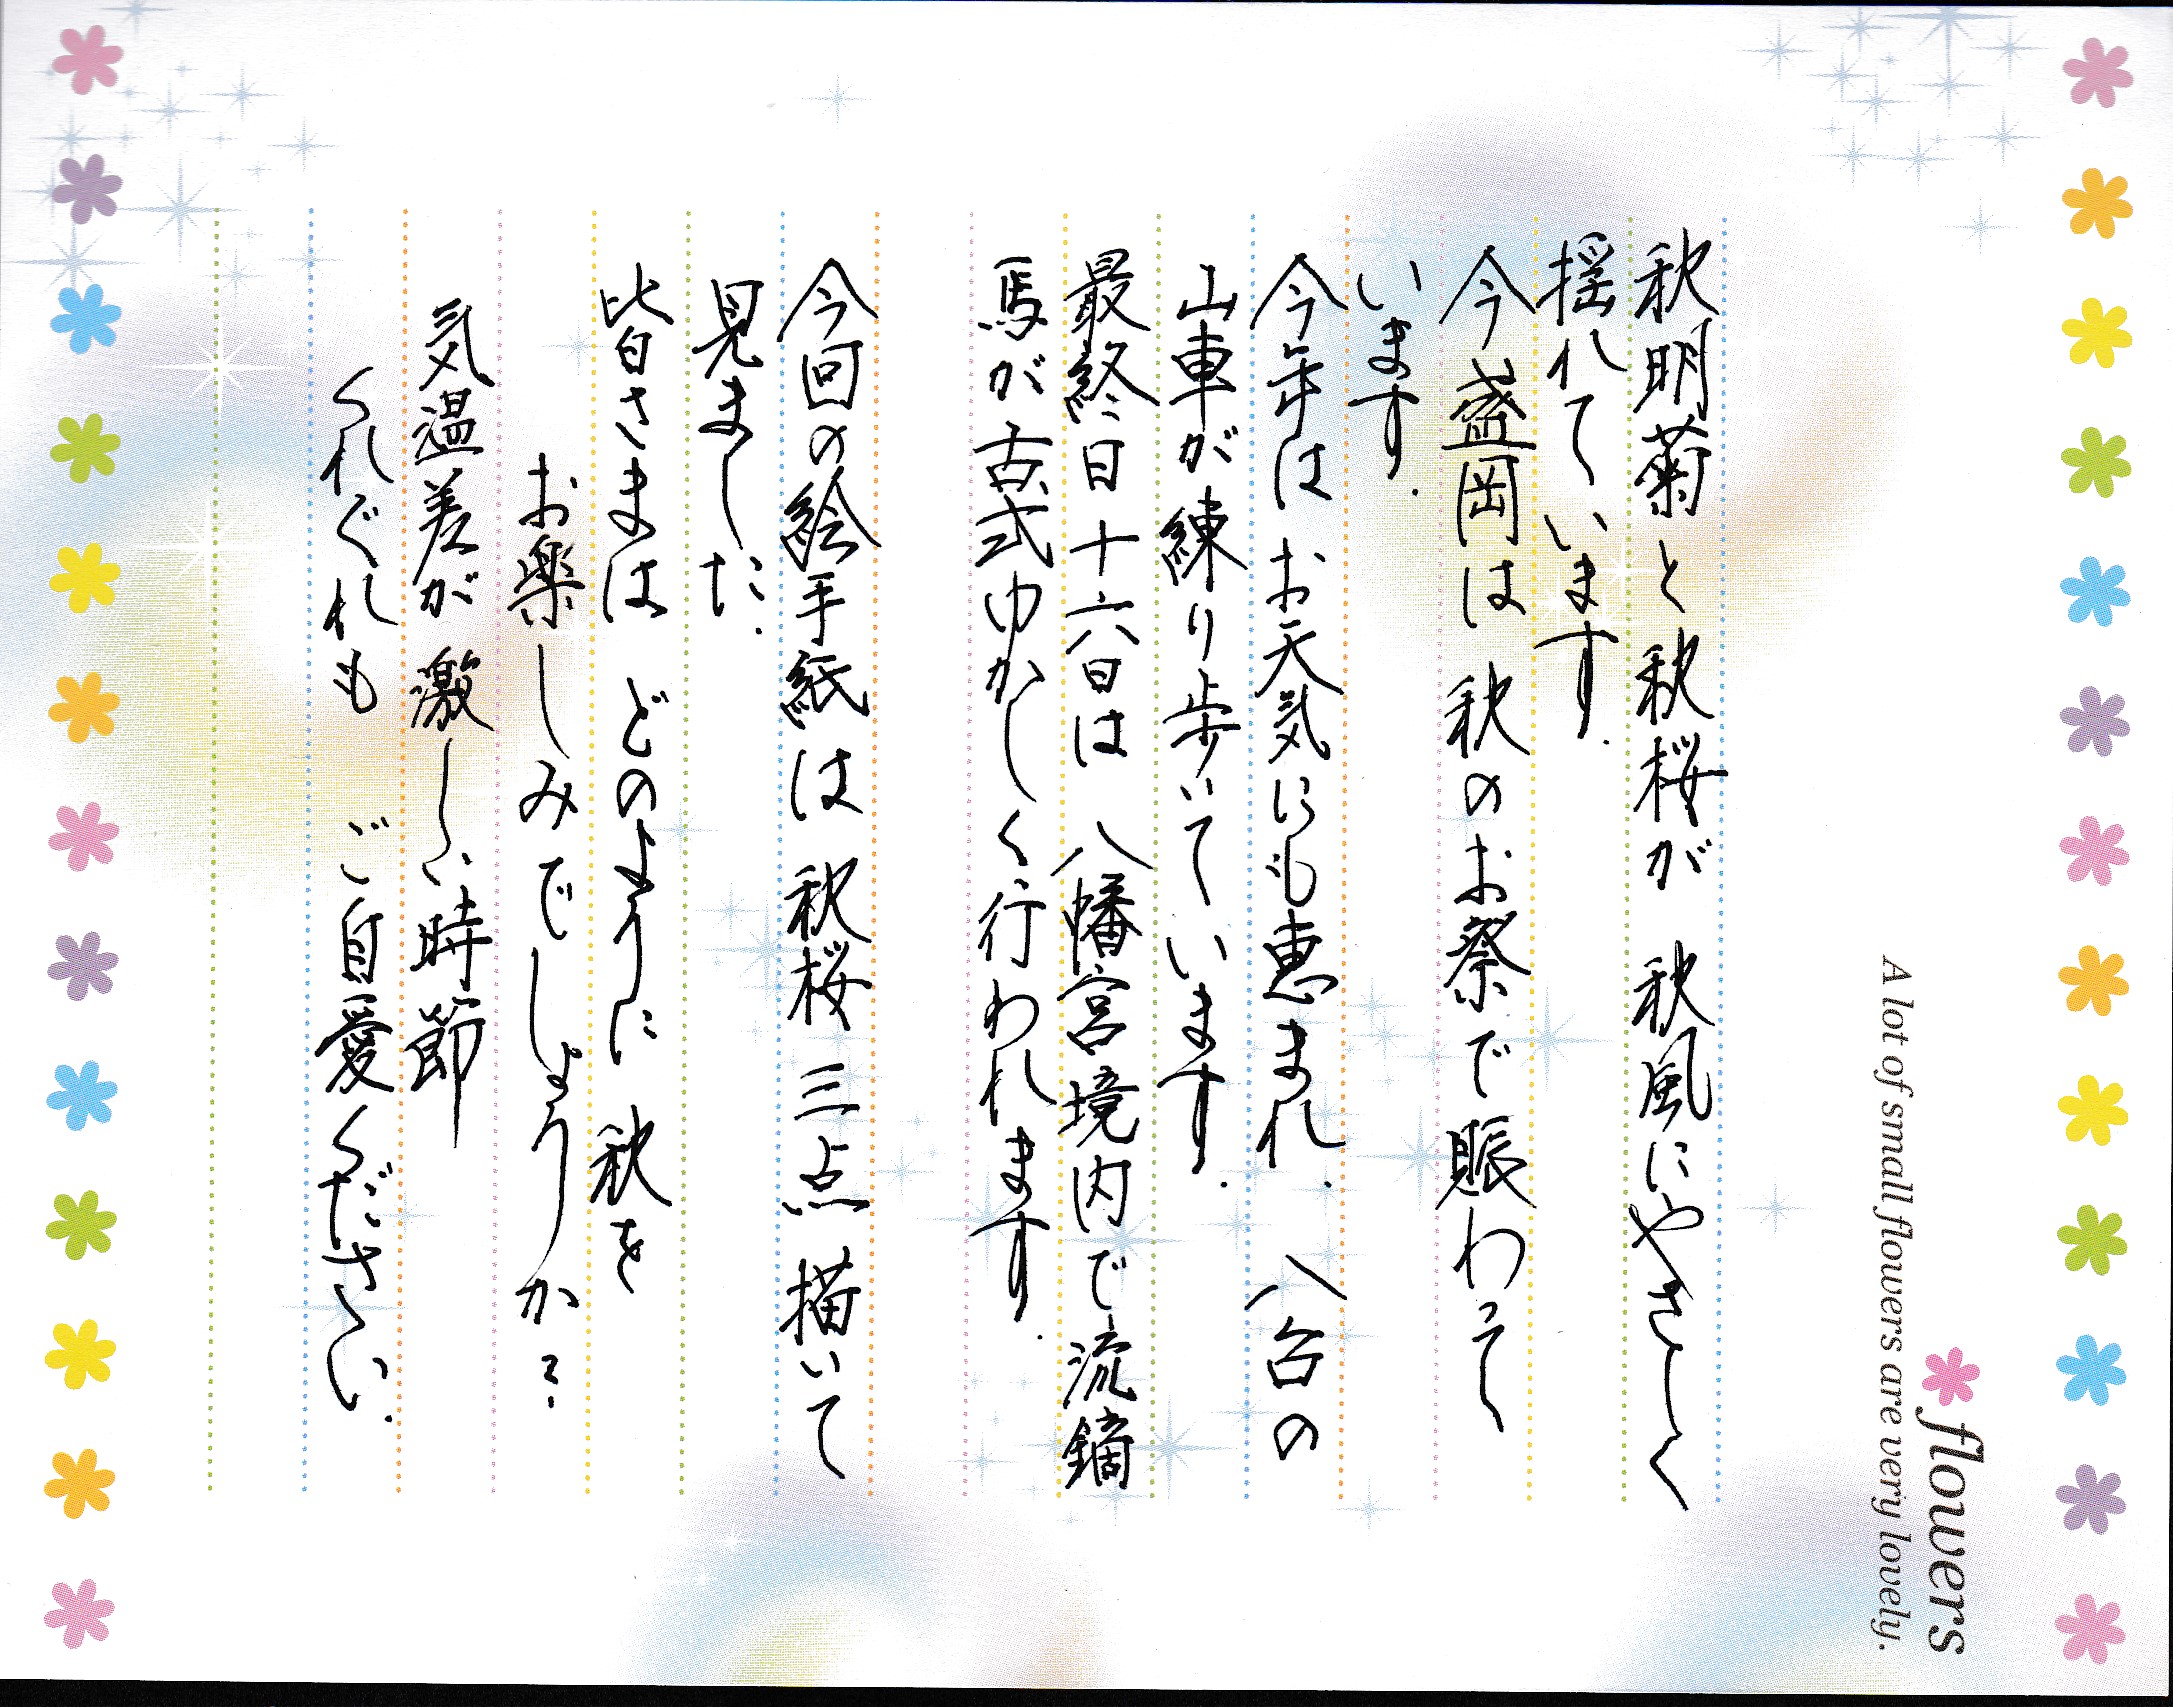 秋明菊と秋桜が 秋風にやさしく
揺れています.
今盛岡は 秋のお祭で賑わって
います.
今年は お天気にも恵まれ. 八台の
山車が練り歩いています.
最終日 十六日は 八幡宮境内で流鏑
馬が古式ゆかしく行われます.
今回の絵手紙は 秋桜 三点 描いて
見ました.
皆さまは どのように 秋を
お楽しみでしょうか?
気温差が 激しい時節
くれぐれも ご自愛ください.
flowers
A lot of small flowers are very lovely.